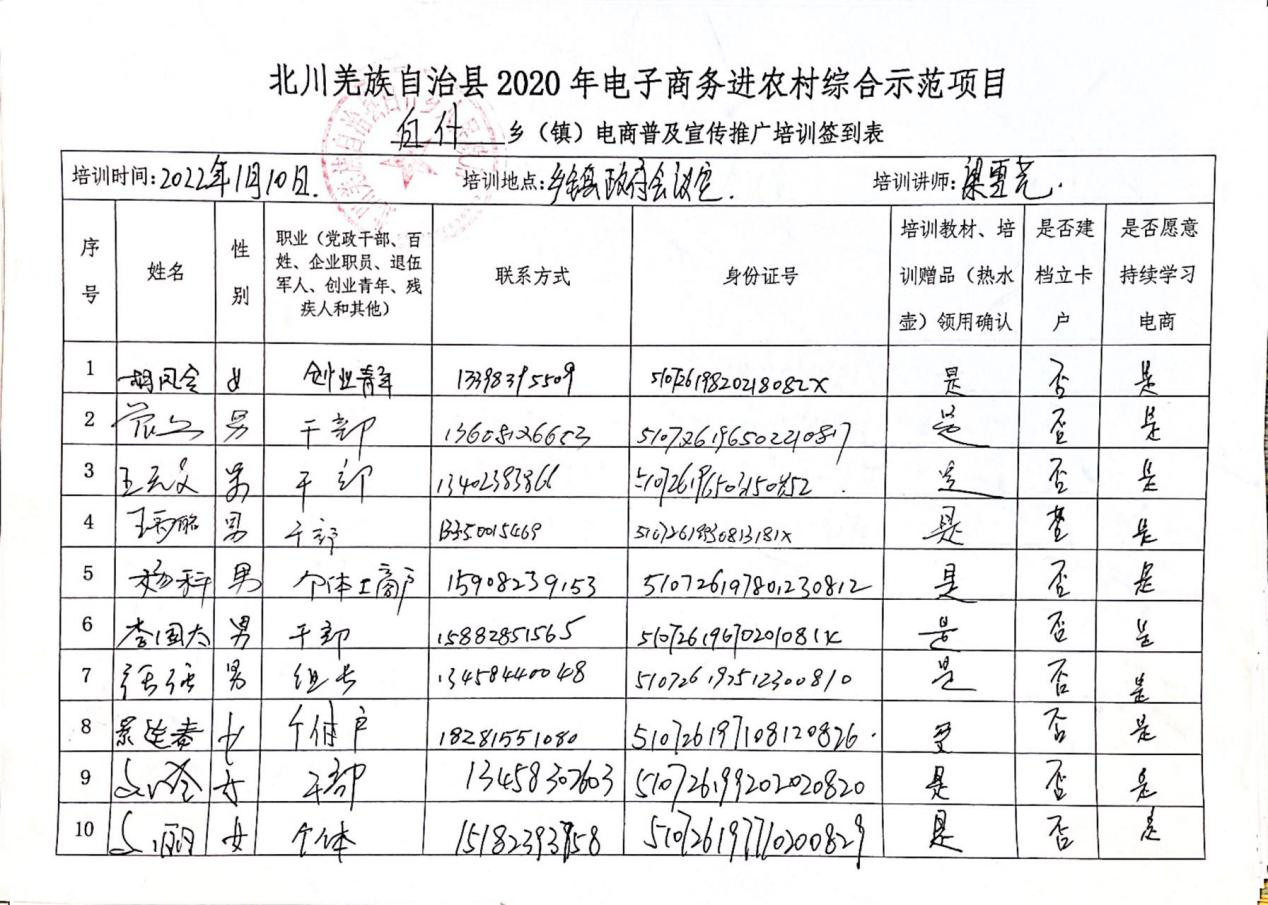 北川羌族自治县 2020 年电子商务进农村综合示范项目
白什 乡（镇）电商普及宣传推广培训签到表
培训时间:2022年1月10日. 培训地点:乡镇政府会议室. 培训讲师:
序号 姓名 性别 职业（党政干部、百姓、企业职员、退伍军人、创业青年、残疾人和其他） 联系方式 身份证号 培训教材、培训赠品（热水壶）领用确认 是否建档立卡户 是否愿意持续学习电商
1 女 创业青年 13398395509 51072619820218082X 是 否 是
2 男 干部 13608126653 510726196502210817 是 否 是
3 王元文 男 干部 是 否 是
4 男 干部 13350015469 51072619930813181X 是 否 是
5 杨科 男 个体工商户 15908239153 510726197801230812 是 否 是
6 李国大 男 干部 15882851565 51072619670201081X 是 否 是
7 男 组长 13458440048 510726192512300810 是 否 是
8 女 个体户 18281551080 510726197108120826 是 否 是
9 女 干部 13458307603 510726199202020820 是 否 是
10 女 个体 15182393958 510726197710200829 是 否 是